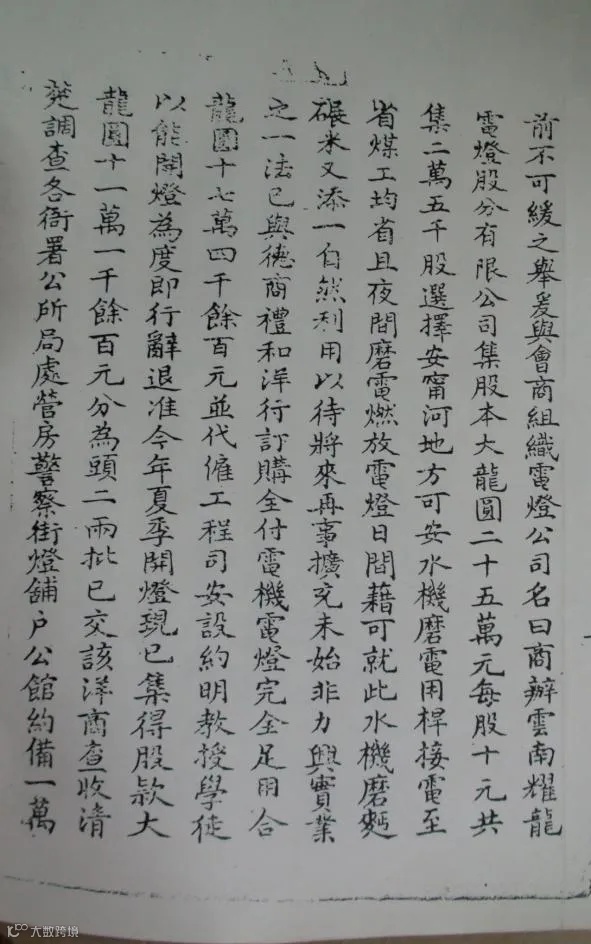 前不可緩之舉爰與會商組織電燈公司名曰商辦雲南耀龍
電燈股分有限公司集股本大龍圓二十五萬元每股十元共
集二萬五千股選擇安甯河地方可安水機磨電用桿接電至
省煤工均省且夜間磨電燃放電燈日間藉可就此水機磨麪
碾米又添一自然利用以待將來再事擴充未始非力興實業
之一法已與德商禮和洋行訂購全付電機電燈完全足用合
龍圓十七萬四千餘百元並代僱工程司安設約明教授學徒
以能開燈為度即行辭退准今年夏季開燈現已集得股款大
龍圓十一萬一千餘百元分為頭二兩批已交該洋商查收清
調查各衙署公所局處營房警察街燈舖戶公館約備一萬
大数跨境